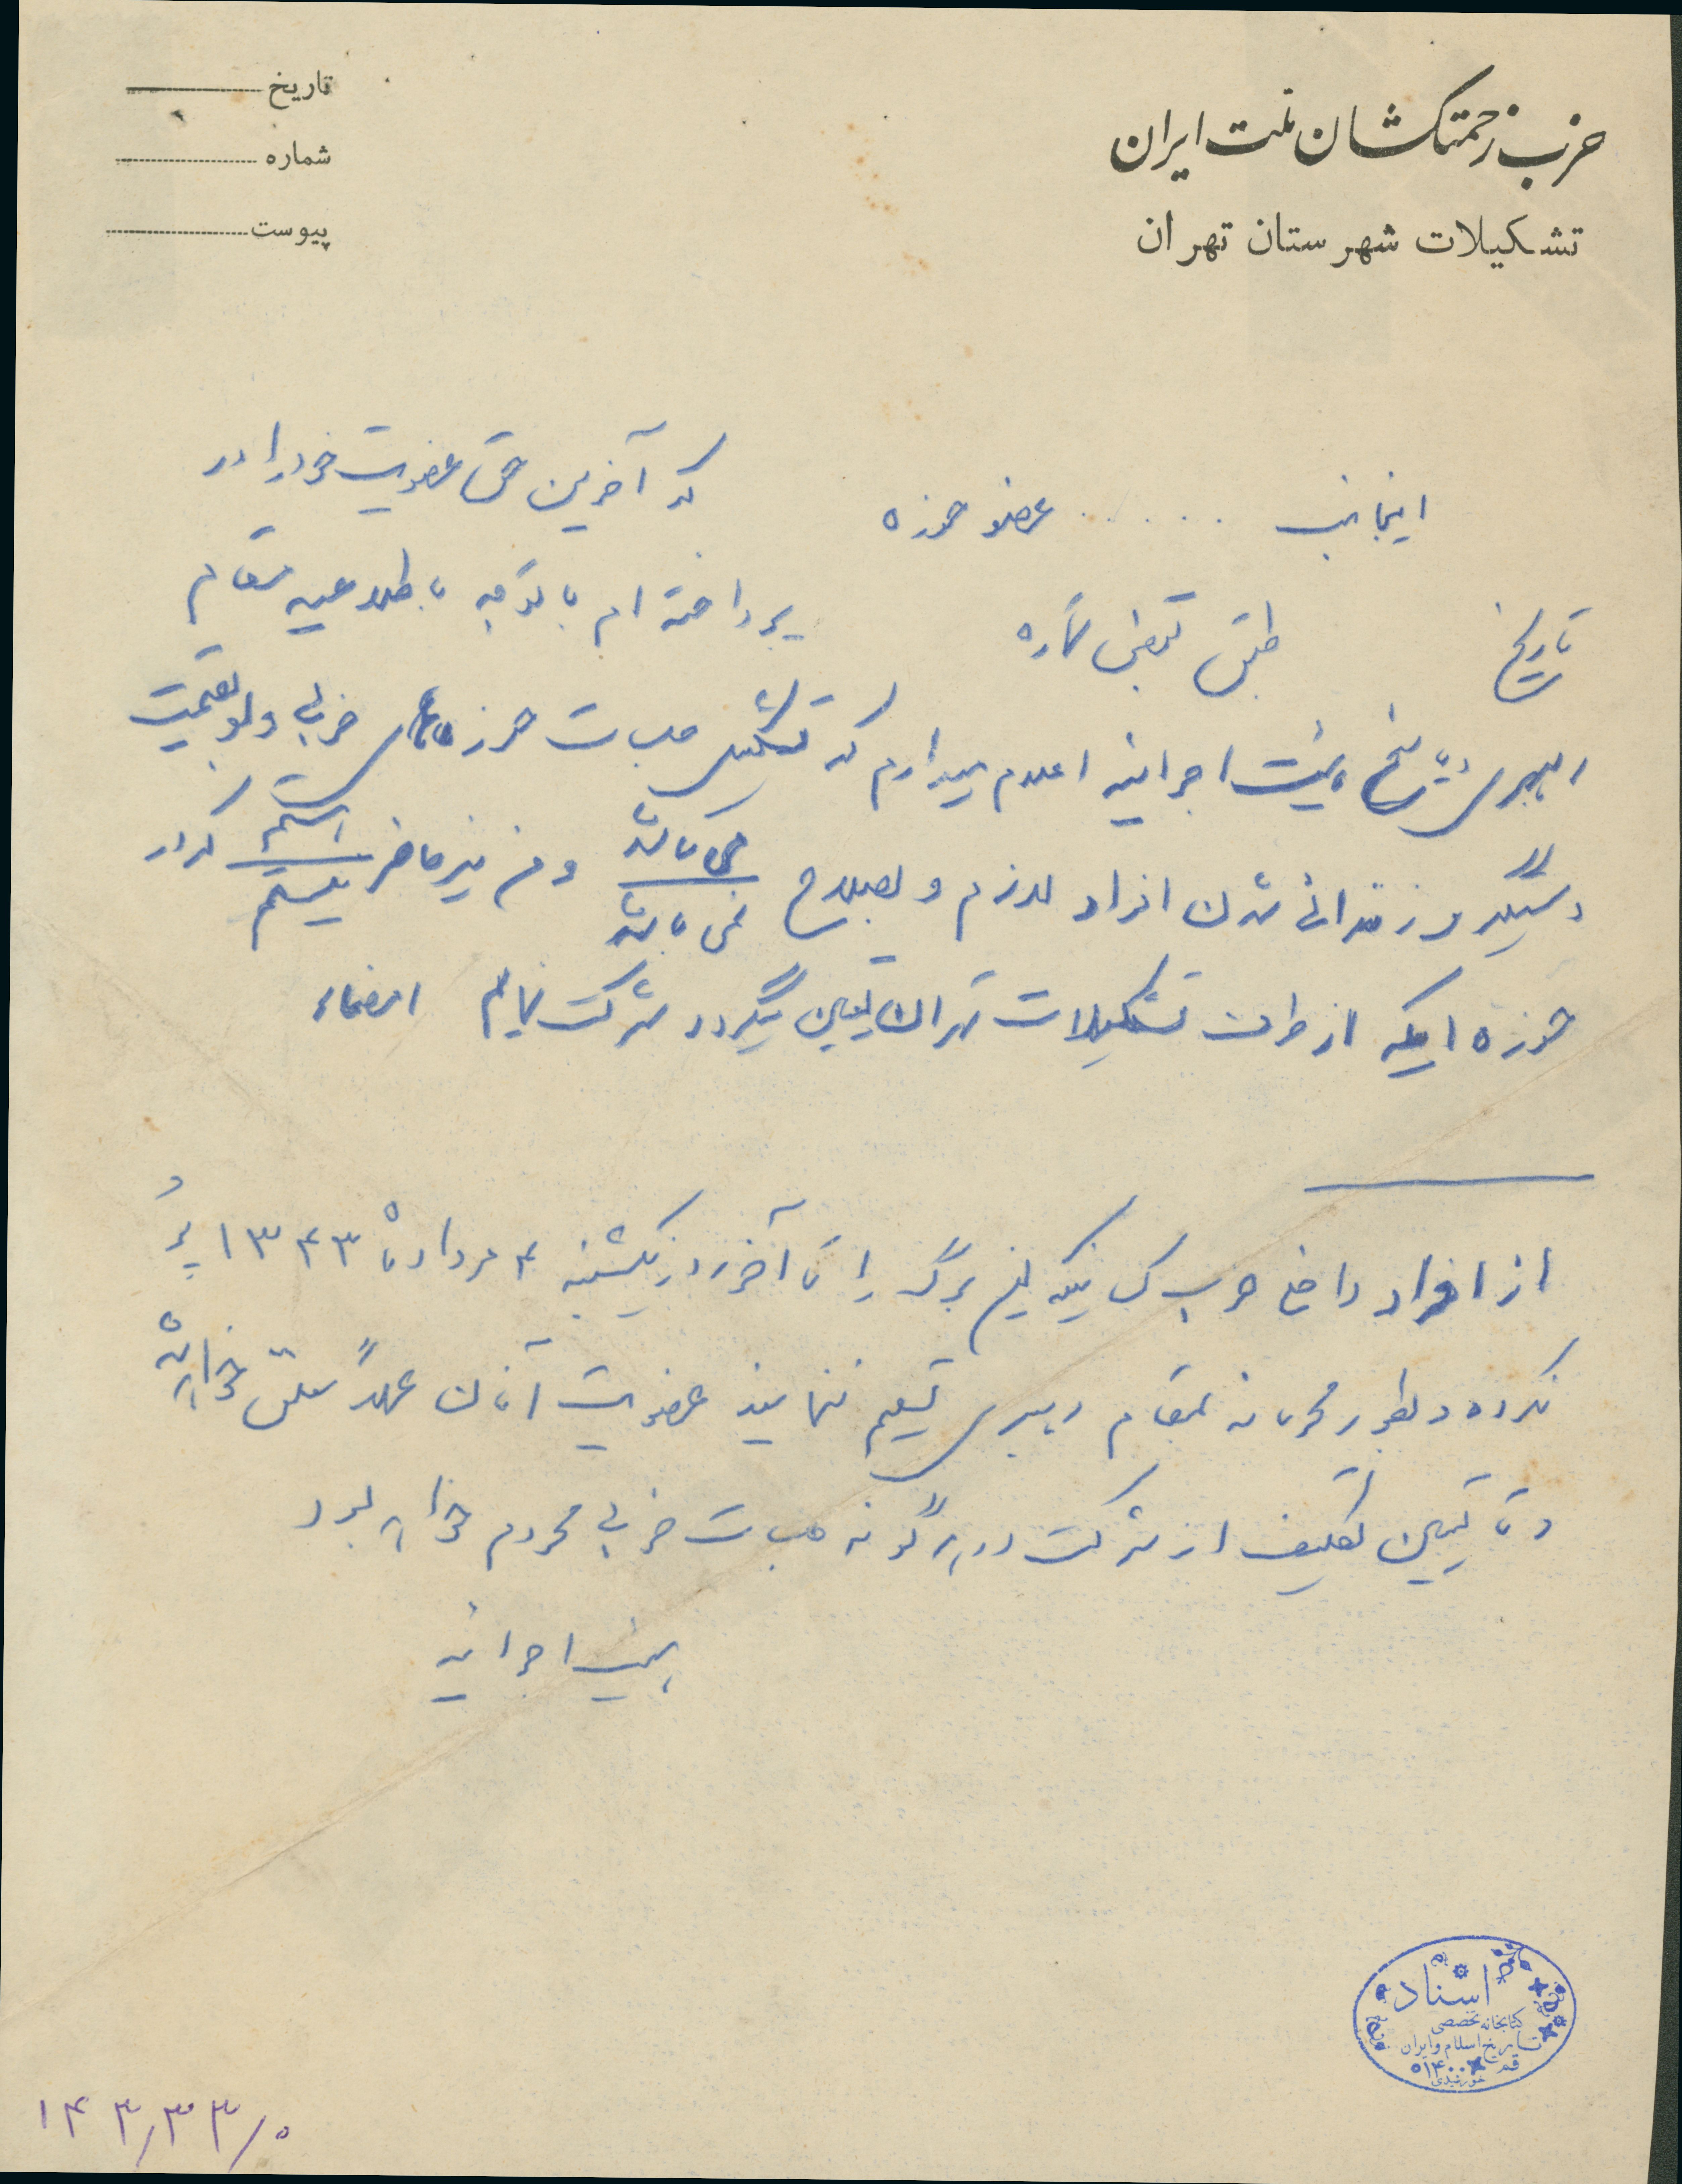 حزب زحمتکشان ملت ایران
تشکیلات شهرستان تهران
تاریخ
شماره
پیوست
اینجانب ..... عضو حوزه که آخرین حق عضویت خود را در
تاریخ طبق قبض شماره پرداخته ام با توجه باطلاعیه مقام
رهبری هیئت اجرائیه اعلام میدارم که تشکیل جلسات حوزه های حزبی ولو بقیمت
دستگیر و زندانی شدن افراد لازم و بصلاح می باشد / نمی باشد و من نیز حاضر هستم / نیستم که در
حوزه ایکه از طرف تشکیلات تهران تعیین میگردد شرکت نمایم امضاء
از افراد حزب کسانیکه این برگ را تا آخر روز یکشنبه ۴ مرداد ۱۳۴۳ پر
نکرده و بطور محرمانه بمقام رهبری تسلیم ننمایند عضویت آنان عملاً معلق خواهد شد
و تا تعیین تکلیف از شرکت در هرگونه جلسات حزبی محروم خواهد بود
هیئت اجرائیه
اسناد
کتابخانه تخصصی
تاریخ اسلام و ایران
قم
۱۴۳٫۳۳/۰